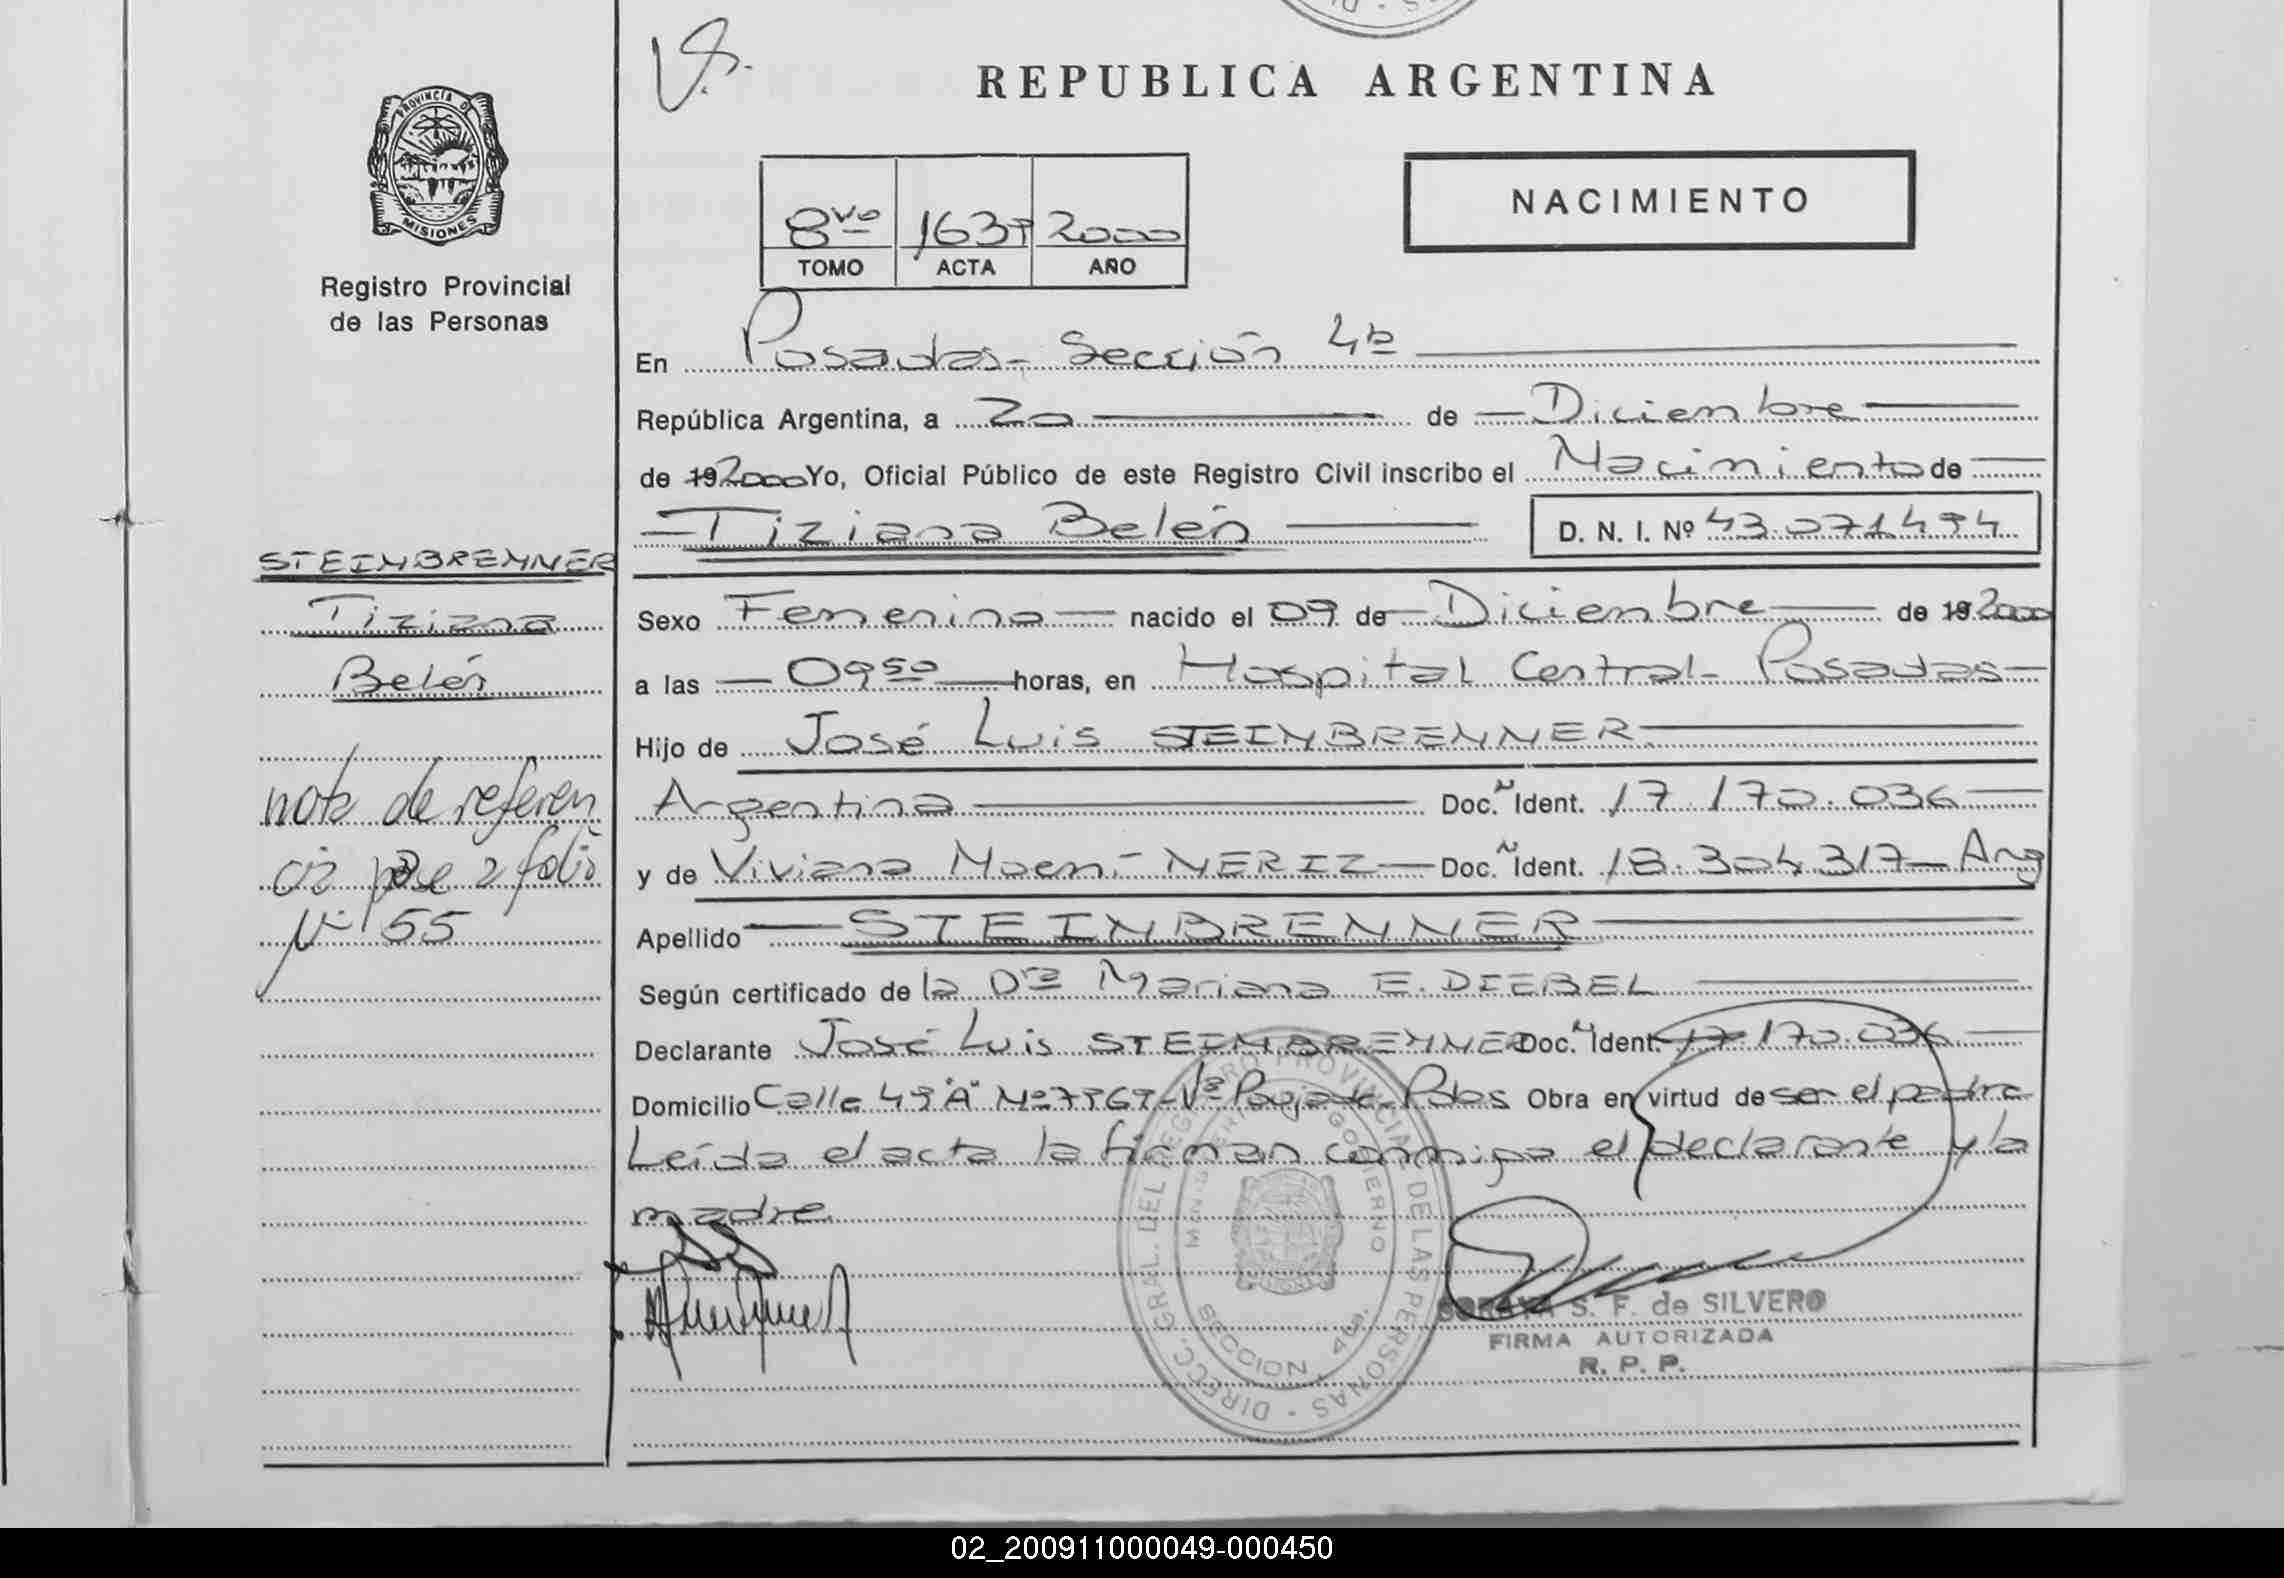 REPUBLICA ARGENTINA
PROVINCIA DE
MISIONES
Registro Provincial
de las Personas
NACIMIENTO
8vo 2000
TOMO ACTA AÑO
En Posadas - Sección 4ta
República Argentina, a 20 de Diciembre
de 192000 Yo, Oficial Público de este Registro Civil inscribo el Nacimiento de
Tiziana Belén D. N. I. Nº
STEINBRENNER
Tiziana
Belén
nota de referen
cia pase a folio
Nº 155
Sexo Femenino nacido el 09 de Diciembre de 192000
a las 09 50 horas, en Hospital Central - Posadas
Hijo de José Luis STEINBRENNER
Argentina Doc. Ident. 17.170.036
y de Viviana Noemí NERIZ Doc. Ident. 18.304.317 - Arg
Apellido STEINBRENNER
Según certificado de la Dra Mariana E. DIEBEL
Declarante José Luis STEINBRENNER Doc. Ident. 17.170.036
Domicilio Calle Pdas Obra en virtud de ser el padre
Leída el acta la firman conmigo el declarante y la
madre
DIRECC. GRAL. DEL REGISTRO PROVINCIAL DE LAS PERSONAS
MINISTERIO GOBIERNO
SECCION 4ta.
SORAYA S. F. de SILVERO
FIRMA AUTORIZADA
R. P. P.
02_200911000049-000450